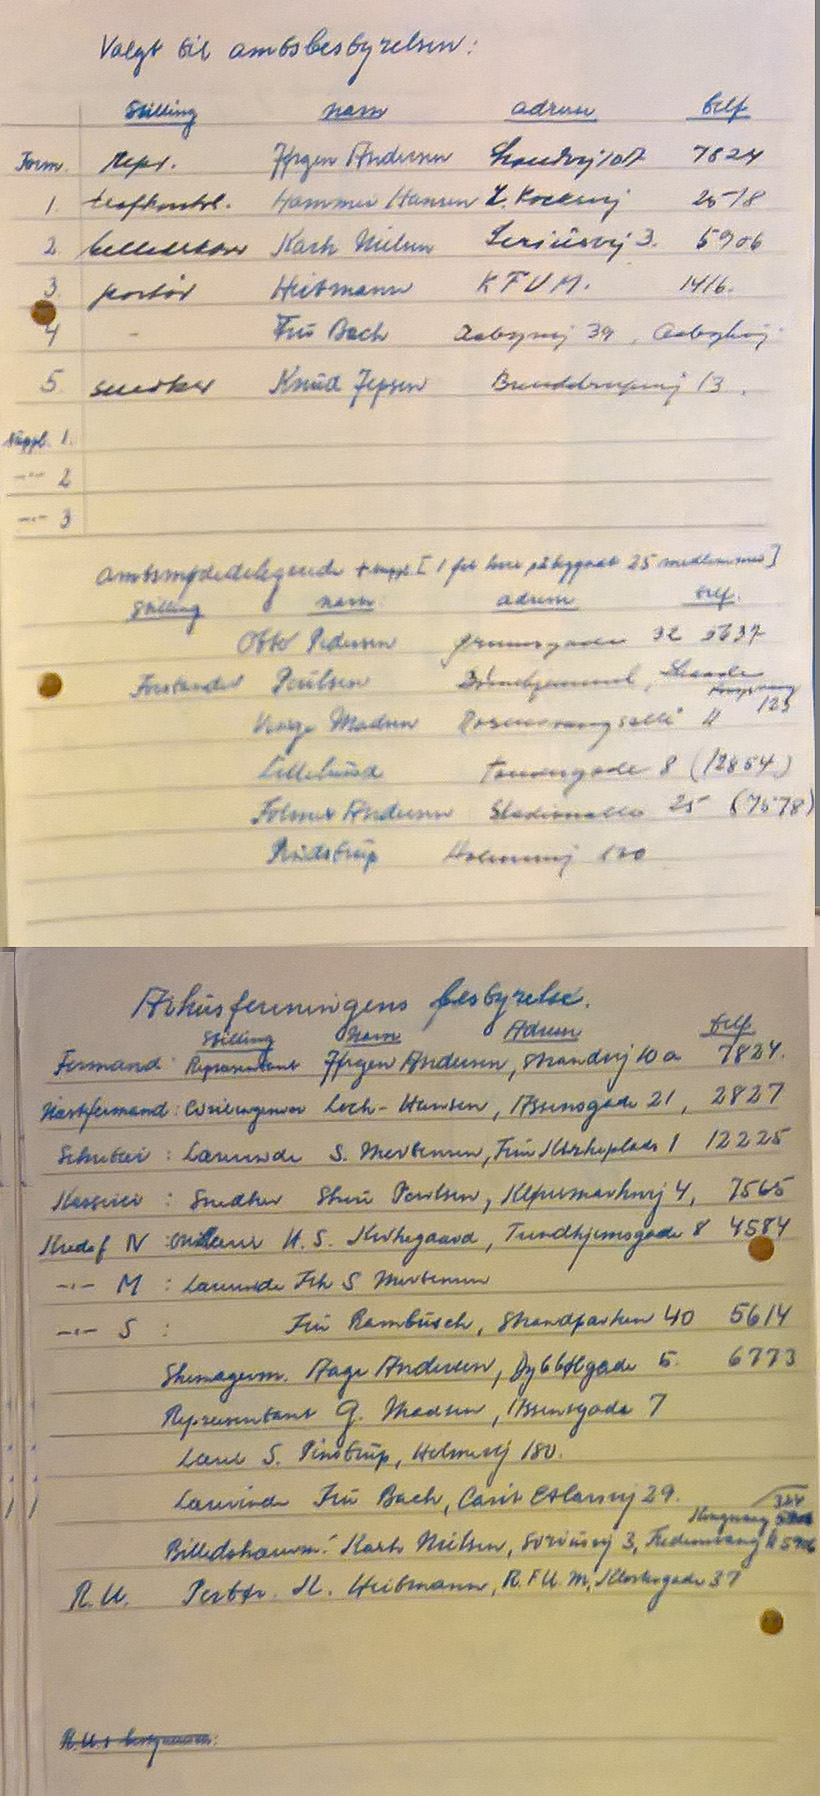 Valgt til amtsbestyrelsen:
Stilling navn adresse telf
Form. repr. Jørgen Andersen Strandvej 10A 7824
1. Hammer Hansen 2578
2. billedskærer Karl Nielsen Siriusvej 3. 5906
3. portør Heitmann KFUM. 1416.
4 - Fru Bach Aabyvej 39, Aabyhøj
5 snedker Knud Jepsen Brendstrupvej 13.
Suppl. 1.
-"- 2
-"- 3
amtsmødedelegerede + suppl. [1 for hver påbegyndt 25 medlemmer]
Stilling navn adresse telf.
Otto Pedersen 32 5637
Forstander Poulsen Børnehjemmet,
123
Madsen Rosenvangsalle
Lillelund 8 (12854)
Folmer Andersen Stadionalle 25 (7578)
Pindstrup Holmevej 180
Århusforeningens bestyrelse.
Stilling Navn Adresse telf
Formand: Repræsentant Jørgen Andersen, Strandvej 10a 7824.
Næstformand: Civilingeniør Loch-Hansen, Assensgade 21, 2827
Sekretær: Lærerinde S. Mortensen, Frue Kirkeplads 1 12225
Kasserer: Snedker Poulsen, 4, 7565
Kredsf N: H. S. Kirkegaard, Trondhjemsgade 8 4584
-"- M: Lærerinde Frk S Mortensen
-"- S: Fru Rambusch, Strandparken 40 5614
Skomagerm. Aage Andersen, Dybbølgade 5. 6773
Repræsentant G. Madsen, Assensgade 7
Lærer S. Pindstrup, Holmevej 180.
Lærerinde Fru Bach, Carit Etlarsvej 29.
Billedskærerm. Karl Nielsen, Siriusvej 3, Fredensvang 5906
R.U. Portør. H. Heitmann, K.F.U.M, Klostergade 37
R.U.s bestyrelse: